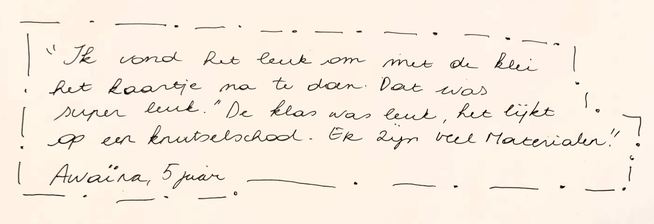 "Ik vond het leuk om met de klei
het kaartje na te doen. Dat was
super leuk." De klas was leuk, het lijkt
op een knutselschool. Er zijn veel Materialen!"
Awaïra, 5 jaar